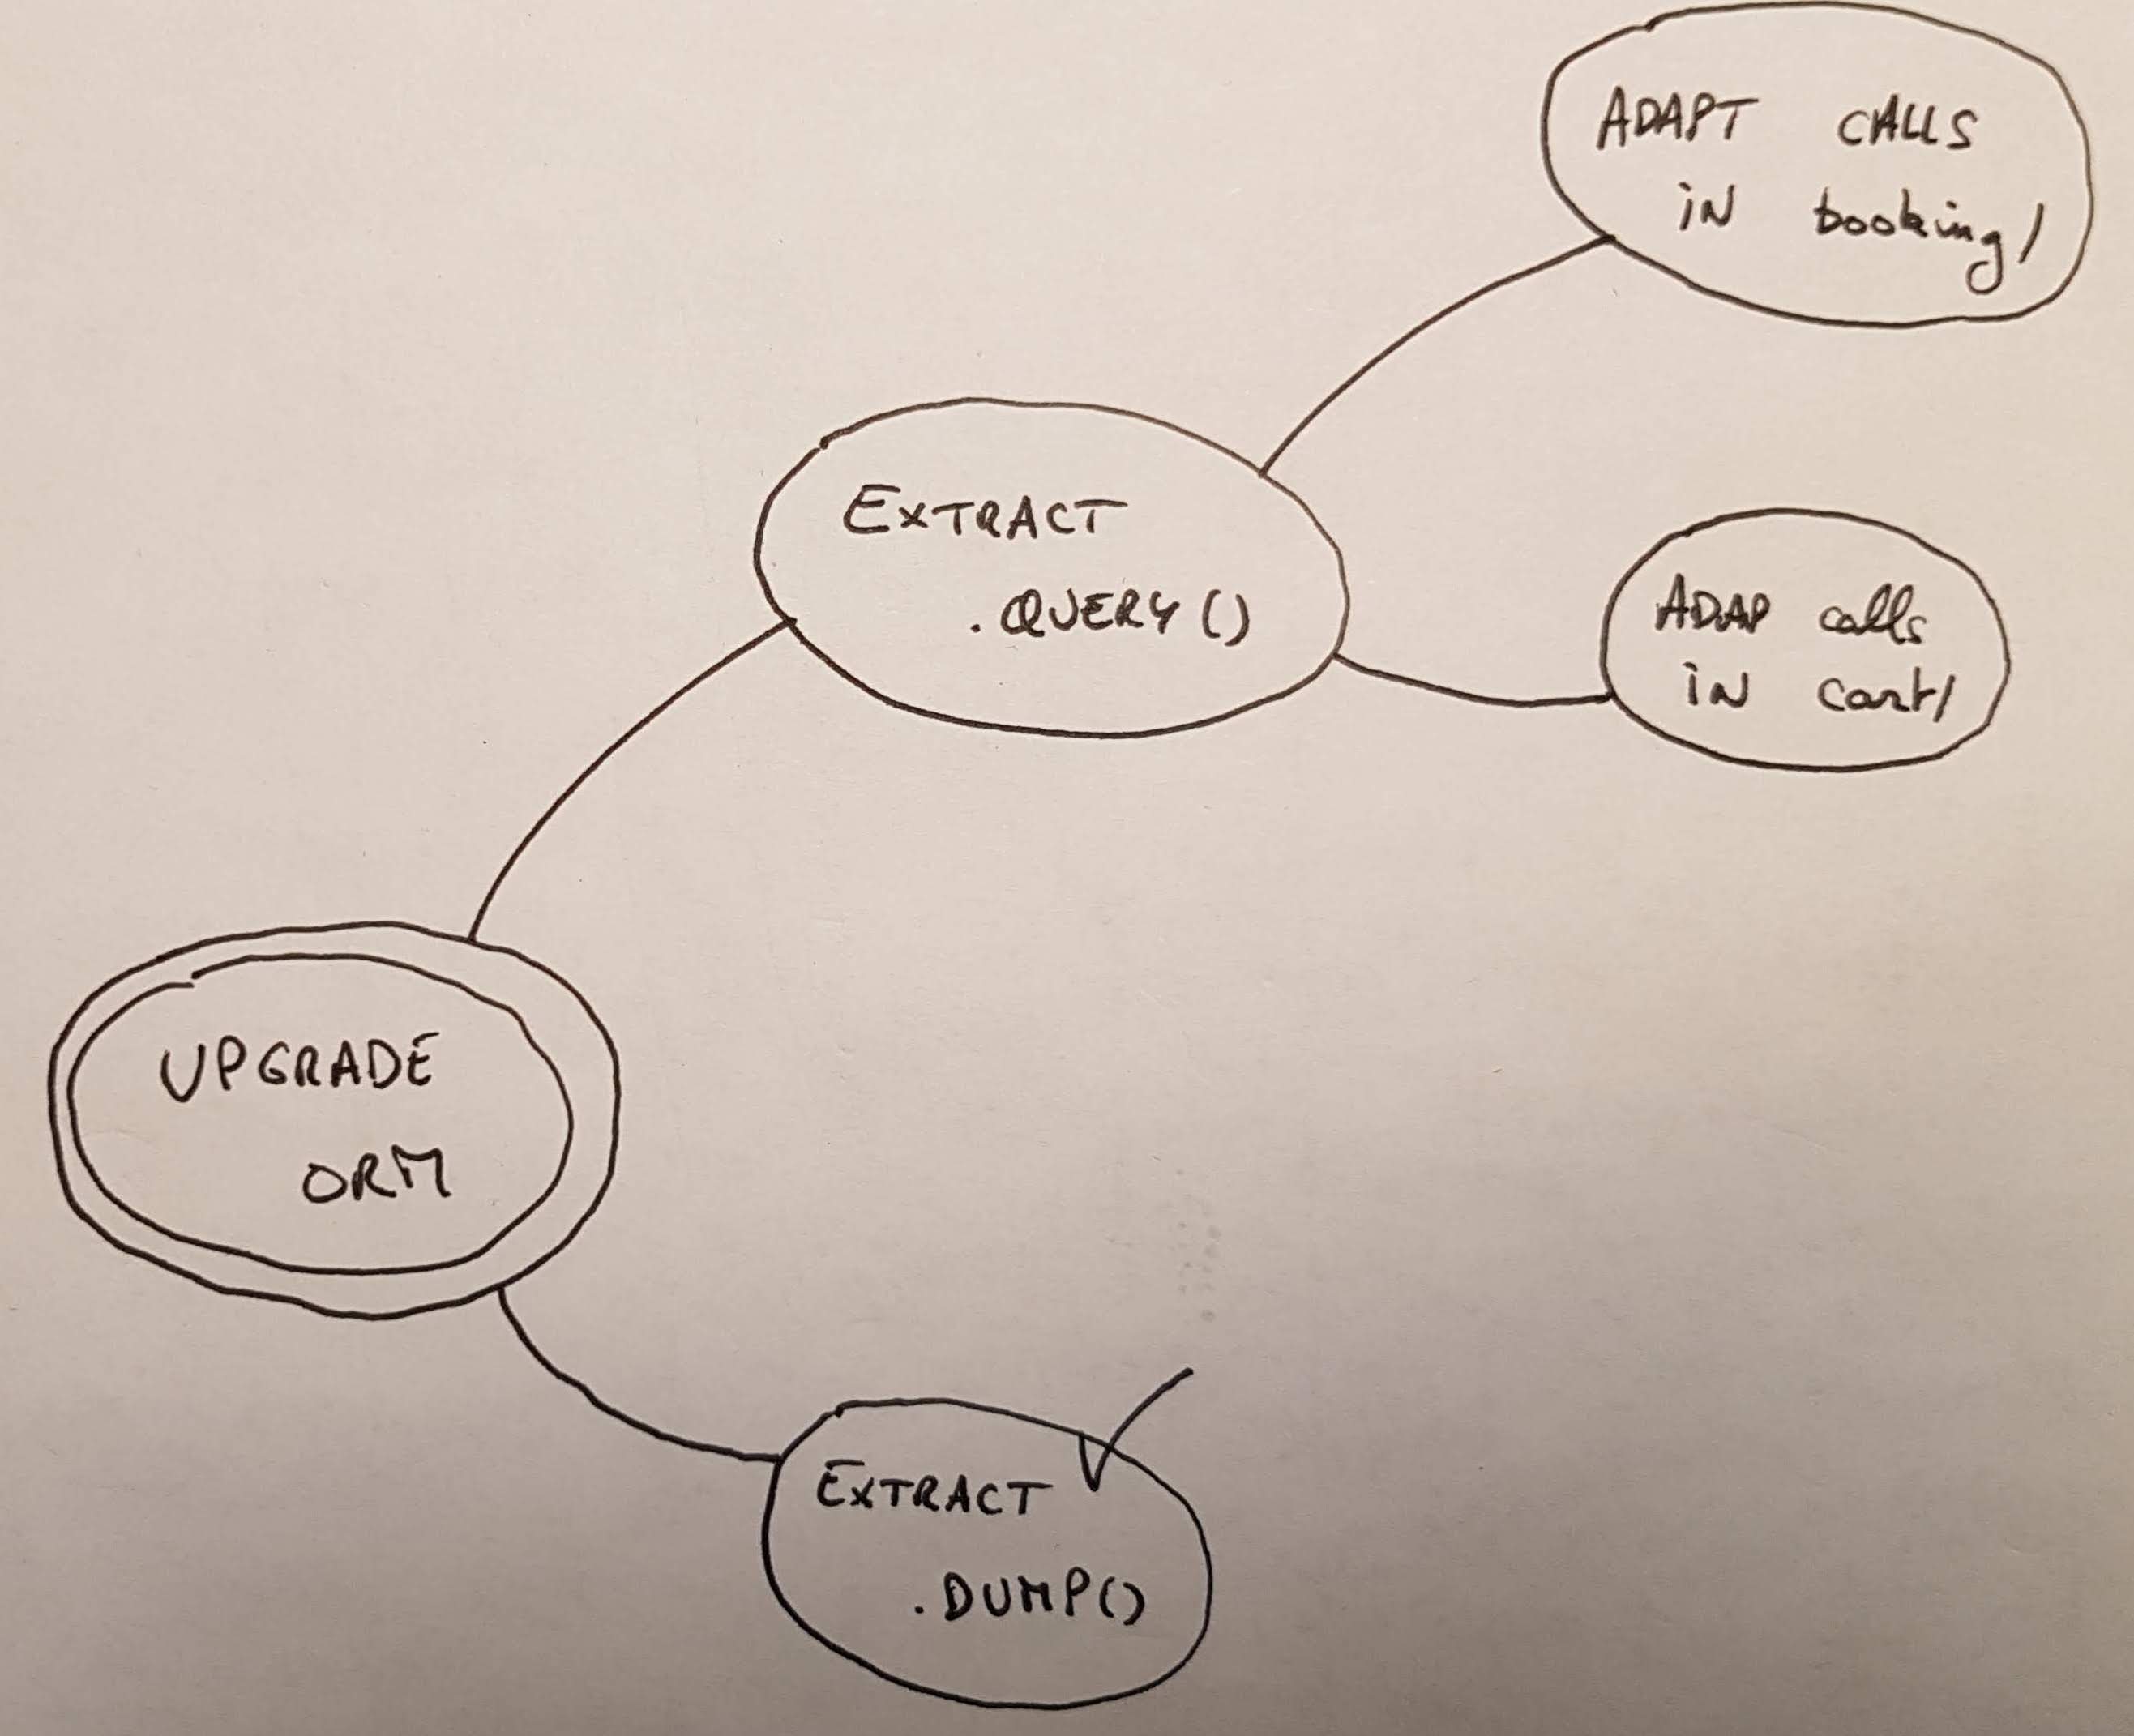 ADAPT CALLS
iN booking/
EXTRACT
.QUERY()
ADAP calls
iN cart/
UPGRADE
ORM
EXTRACT
.DUMP()